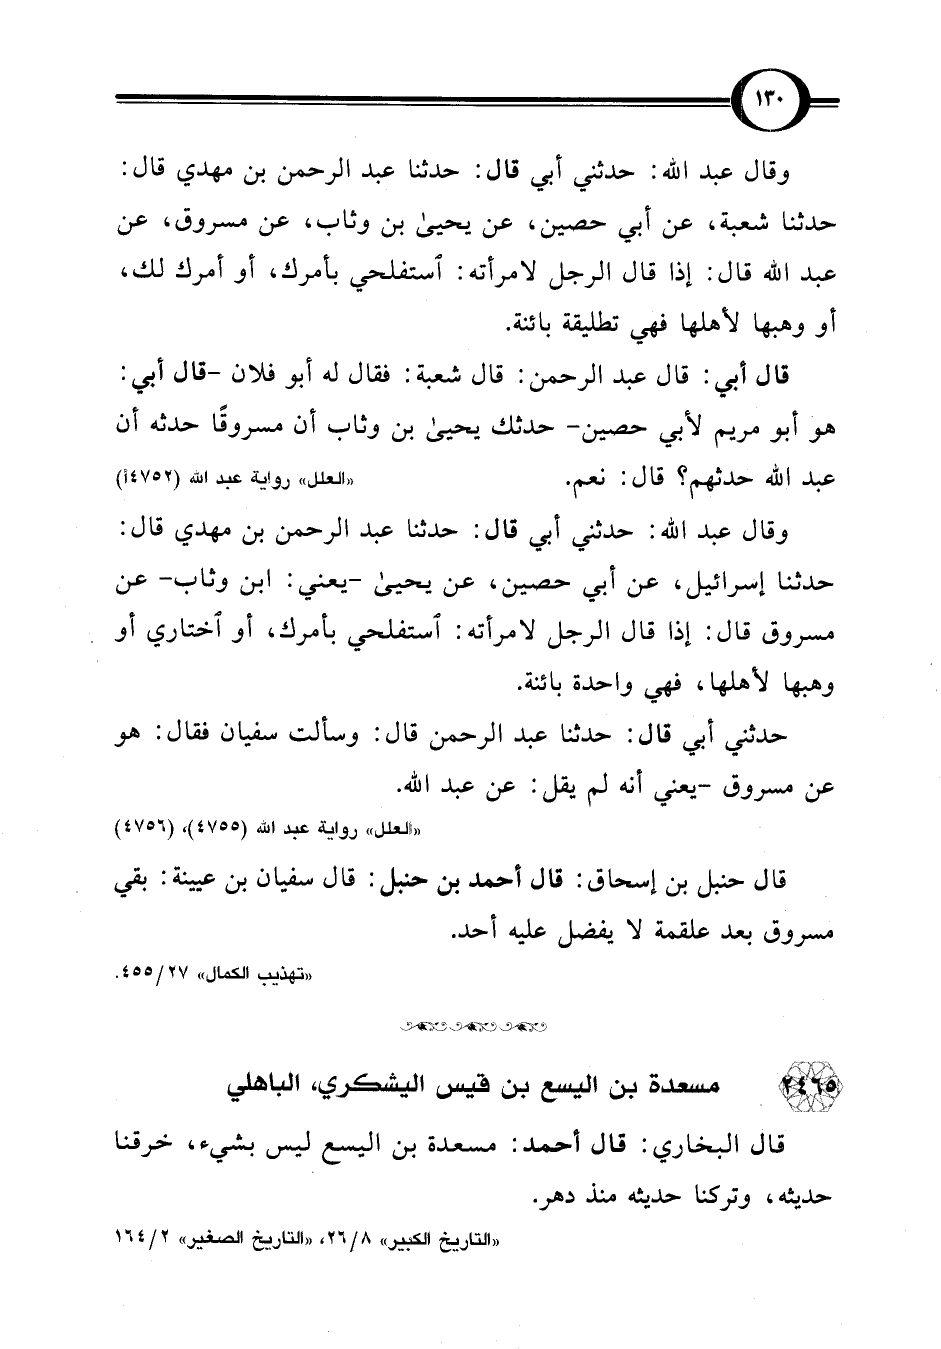 ١٣٠
وقال عبد الله: حدثني أبي قال: حدثنا عبد الرحمن بن مهدي قال:
حدثنا شعبة، عن أبي حصين، عن يحيىٰ بن وثاب، عن مسروق، عن
عبد الله قال: إذا قال الرجل لامرأته: ٱستفلحي بأمرك، أو أمرك لك،
أو وهبها لأهلها فهي تطليقة بائنة.
قال أبي: قال عبد الرحمن: قال شعبة: فقال له أبو فلان -قال أبي:
هو أبو مريم لأبي حصين- حدثك يحيىٰ بن وثاب أن مسروقًا حدثه أن
عبد الله حدثهم؟ قال: نعم. «العلل» رواية عبد الله (٤٧٥٢أ)
وقال عبد الله: حدثني أبي قال: حدثنا عبد الرحمن بن مهدي قال:
حدثنا إسرائيل، عن أبي حصين، عن يحيىٰ -يعني: ابن وثاب- عن
مسروق قال: إذا قال الرجل لامرأته: ٱستفلحي بأمرك، أو ٱختاري أو
وهبها لأهلها، فهي واحدة بائنة.
حدثني أبي قال: حدثنا عبد الرحمن قال: وسألت سفيان فقال: هو
عن مسروق -يعني أنه لم يقل: عن عبد الله.
«العلل» رواية عبد الله (٤٧٥٥)، (٤٧٥٦)
قال حنبل بن إسحاق: قال أحمد بن حنبل: قال سفيان بن عيينة: بقي
مسروق بعد علقمة لا يفضل عليه أحد.
«تهذيب الكمال» ٢٧/ ٤٥٥.
٢٤٦٥ مسعدة بن اليسع بن قيس اليشكري، الباهلي
قال البخاري: قال أحمد: مسعدة بن اليسع ليس بشيء، خرقنا
حديثه، وتركنا حديثه منذ دهر.
«التاريخ الكبير» ٨/ ٢٦، «التاريخ الصغير» ٢/ ١٦٤